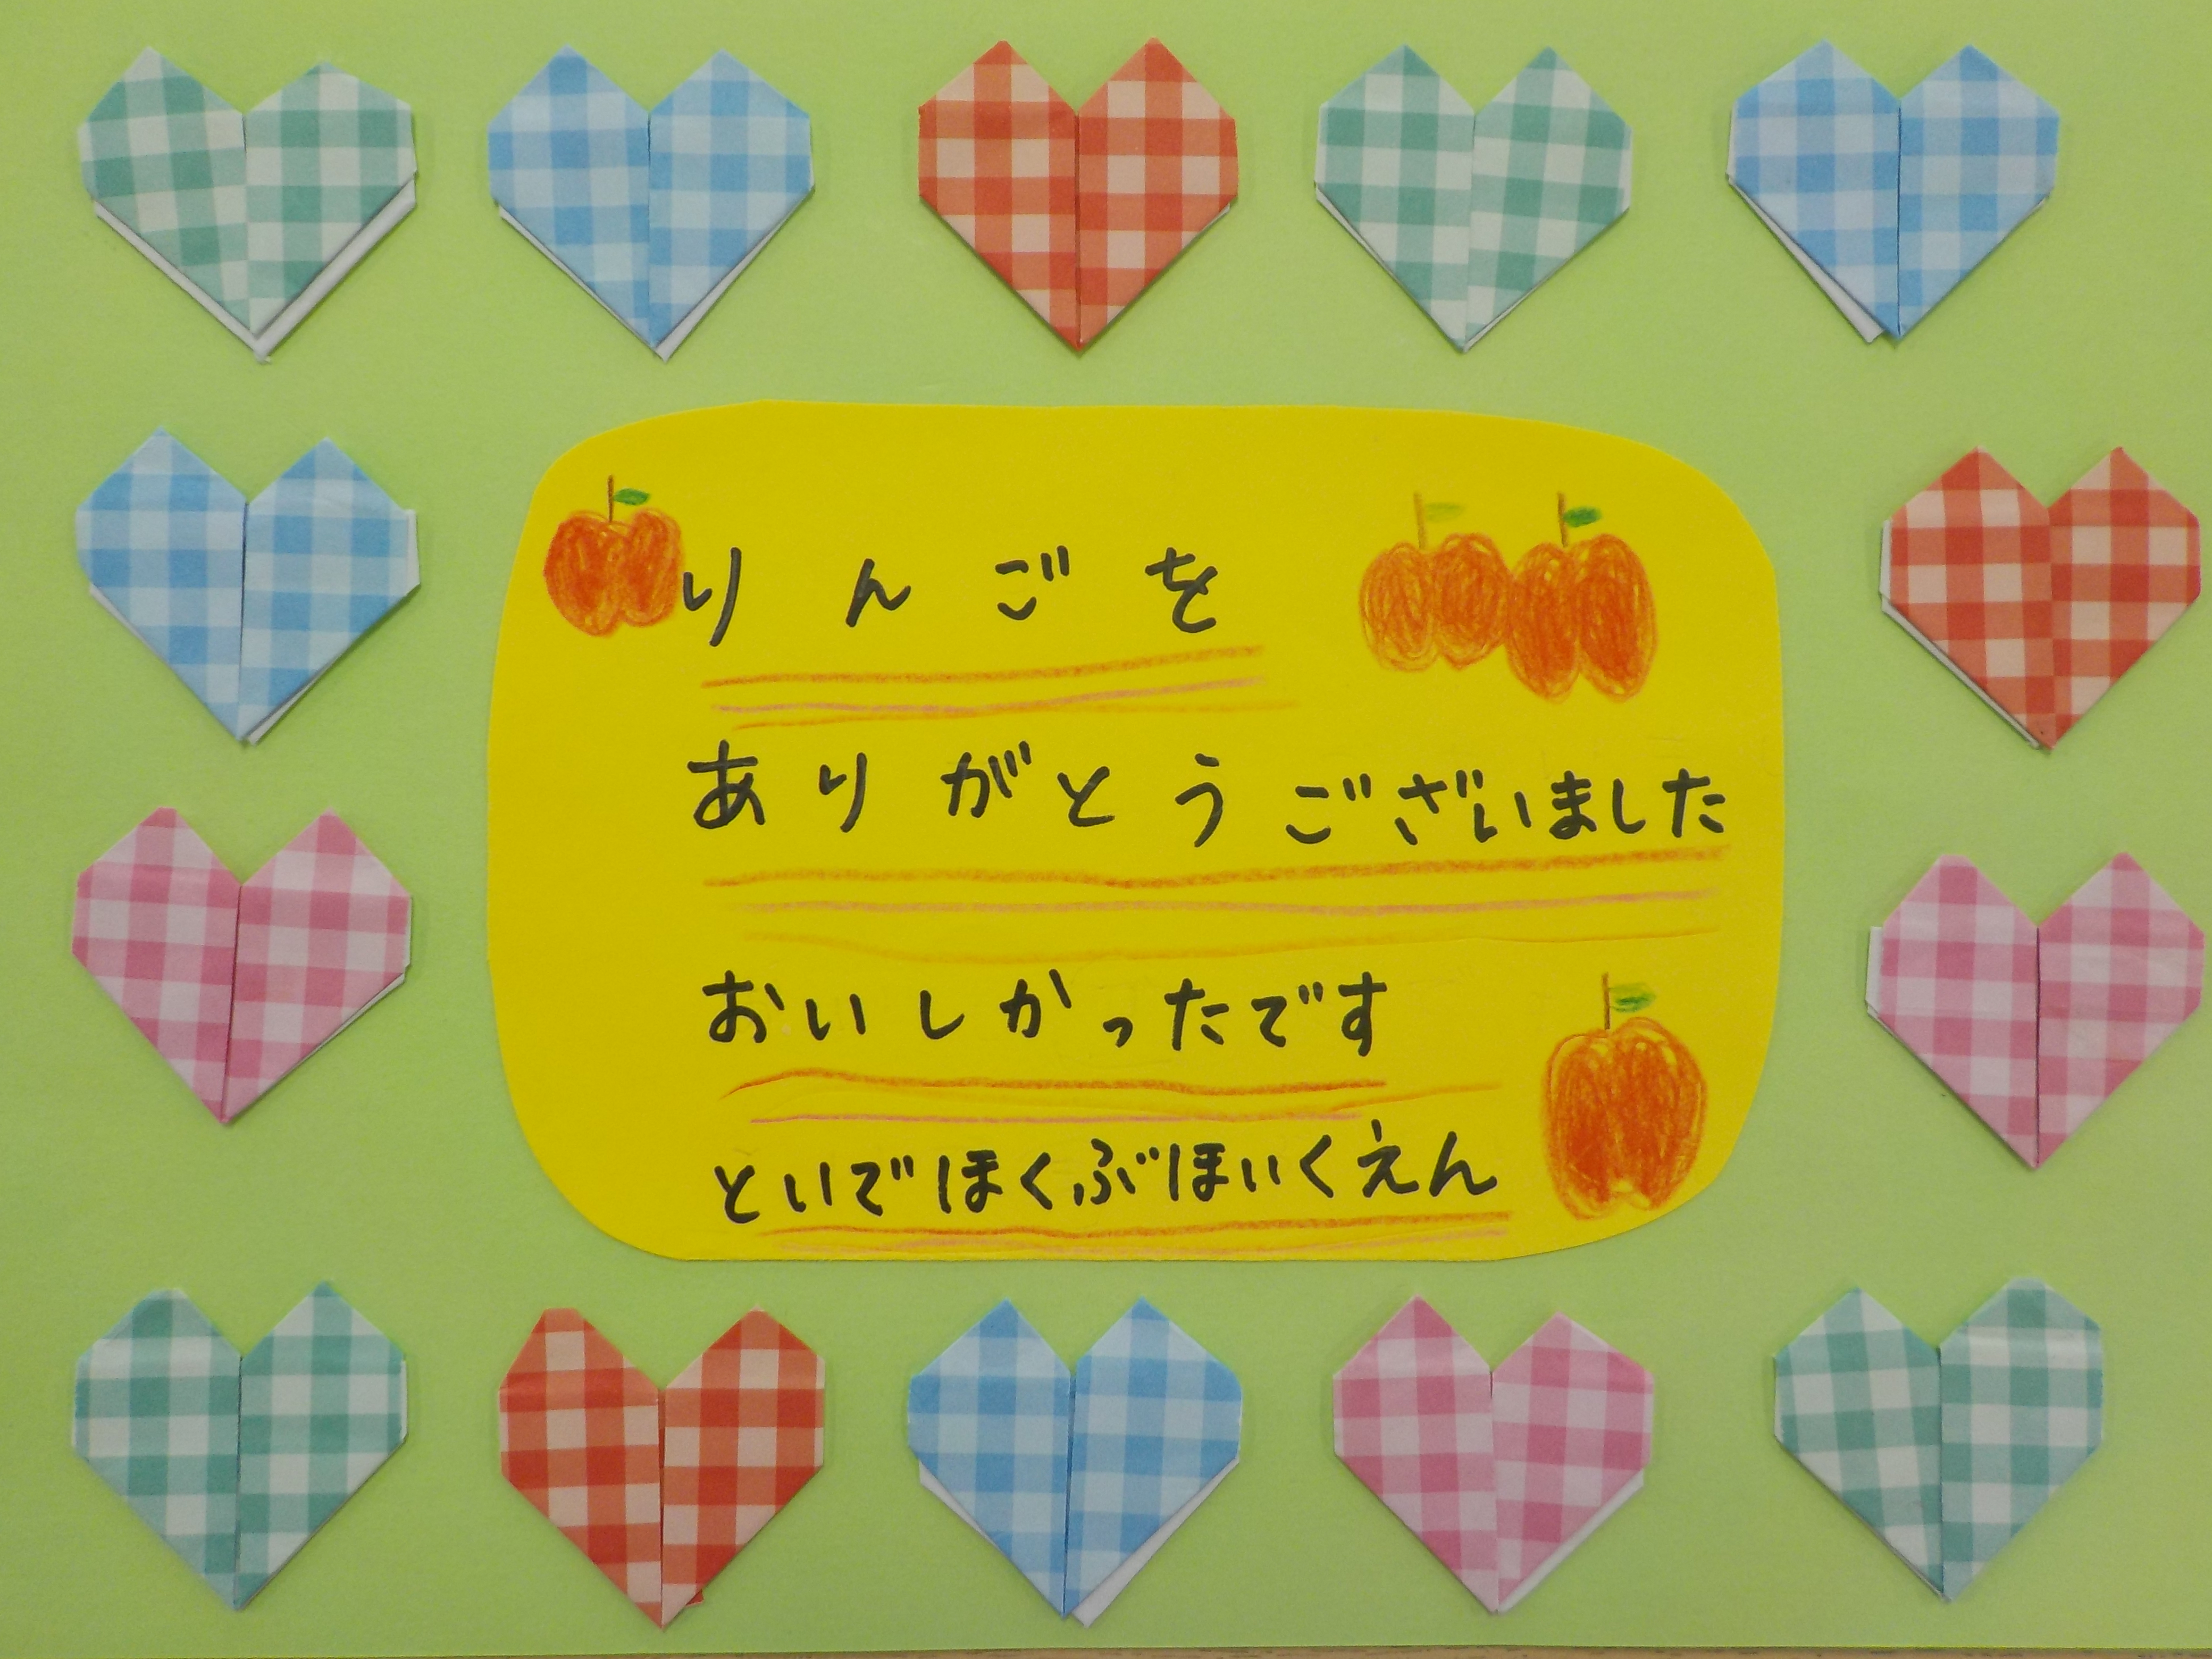 りんごを
ありがとうございました
おいしかったです
といでほくぶほいくえん